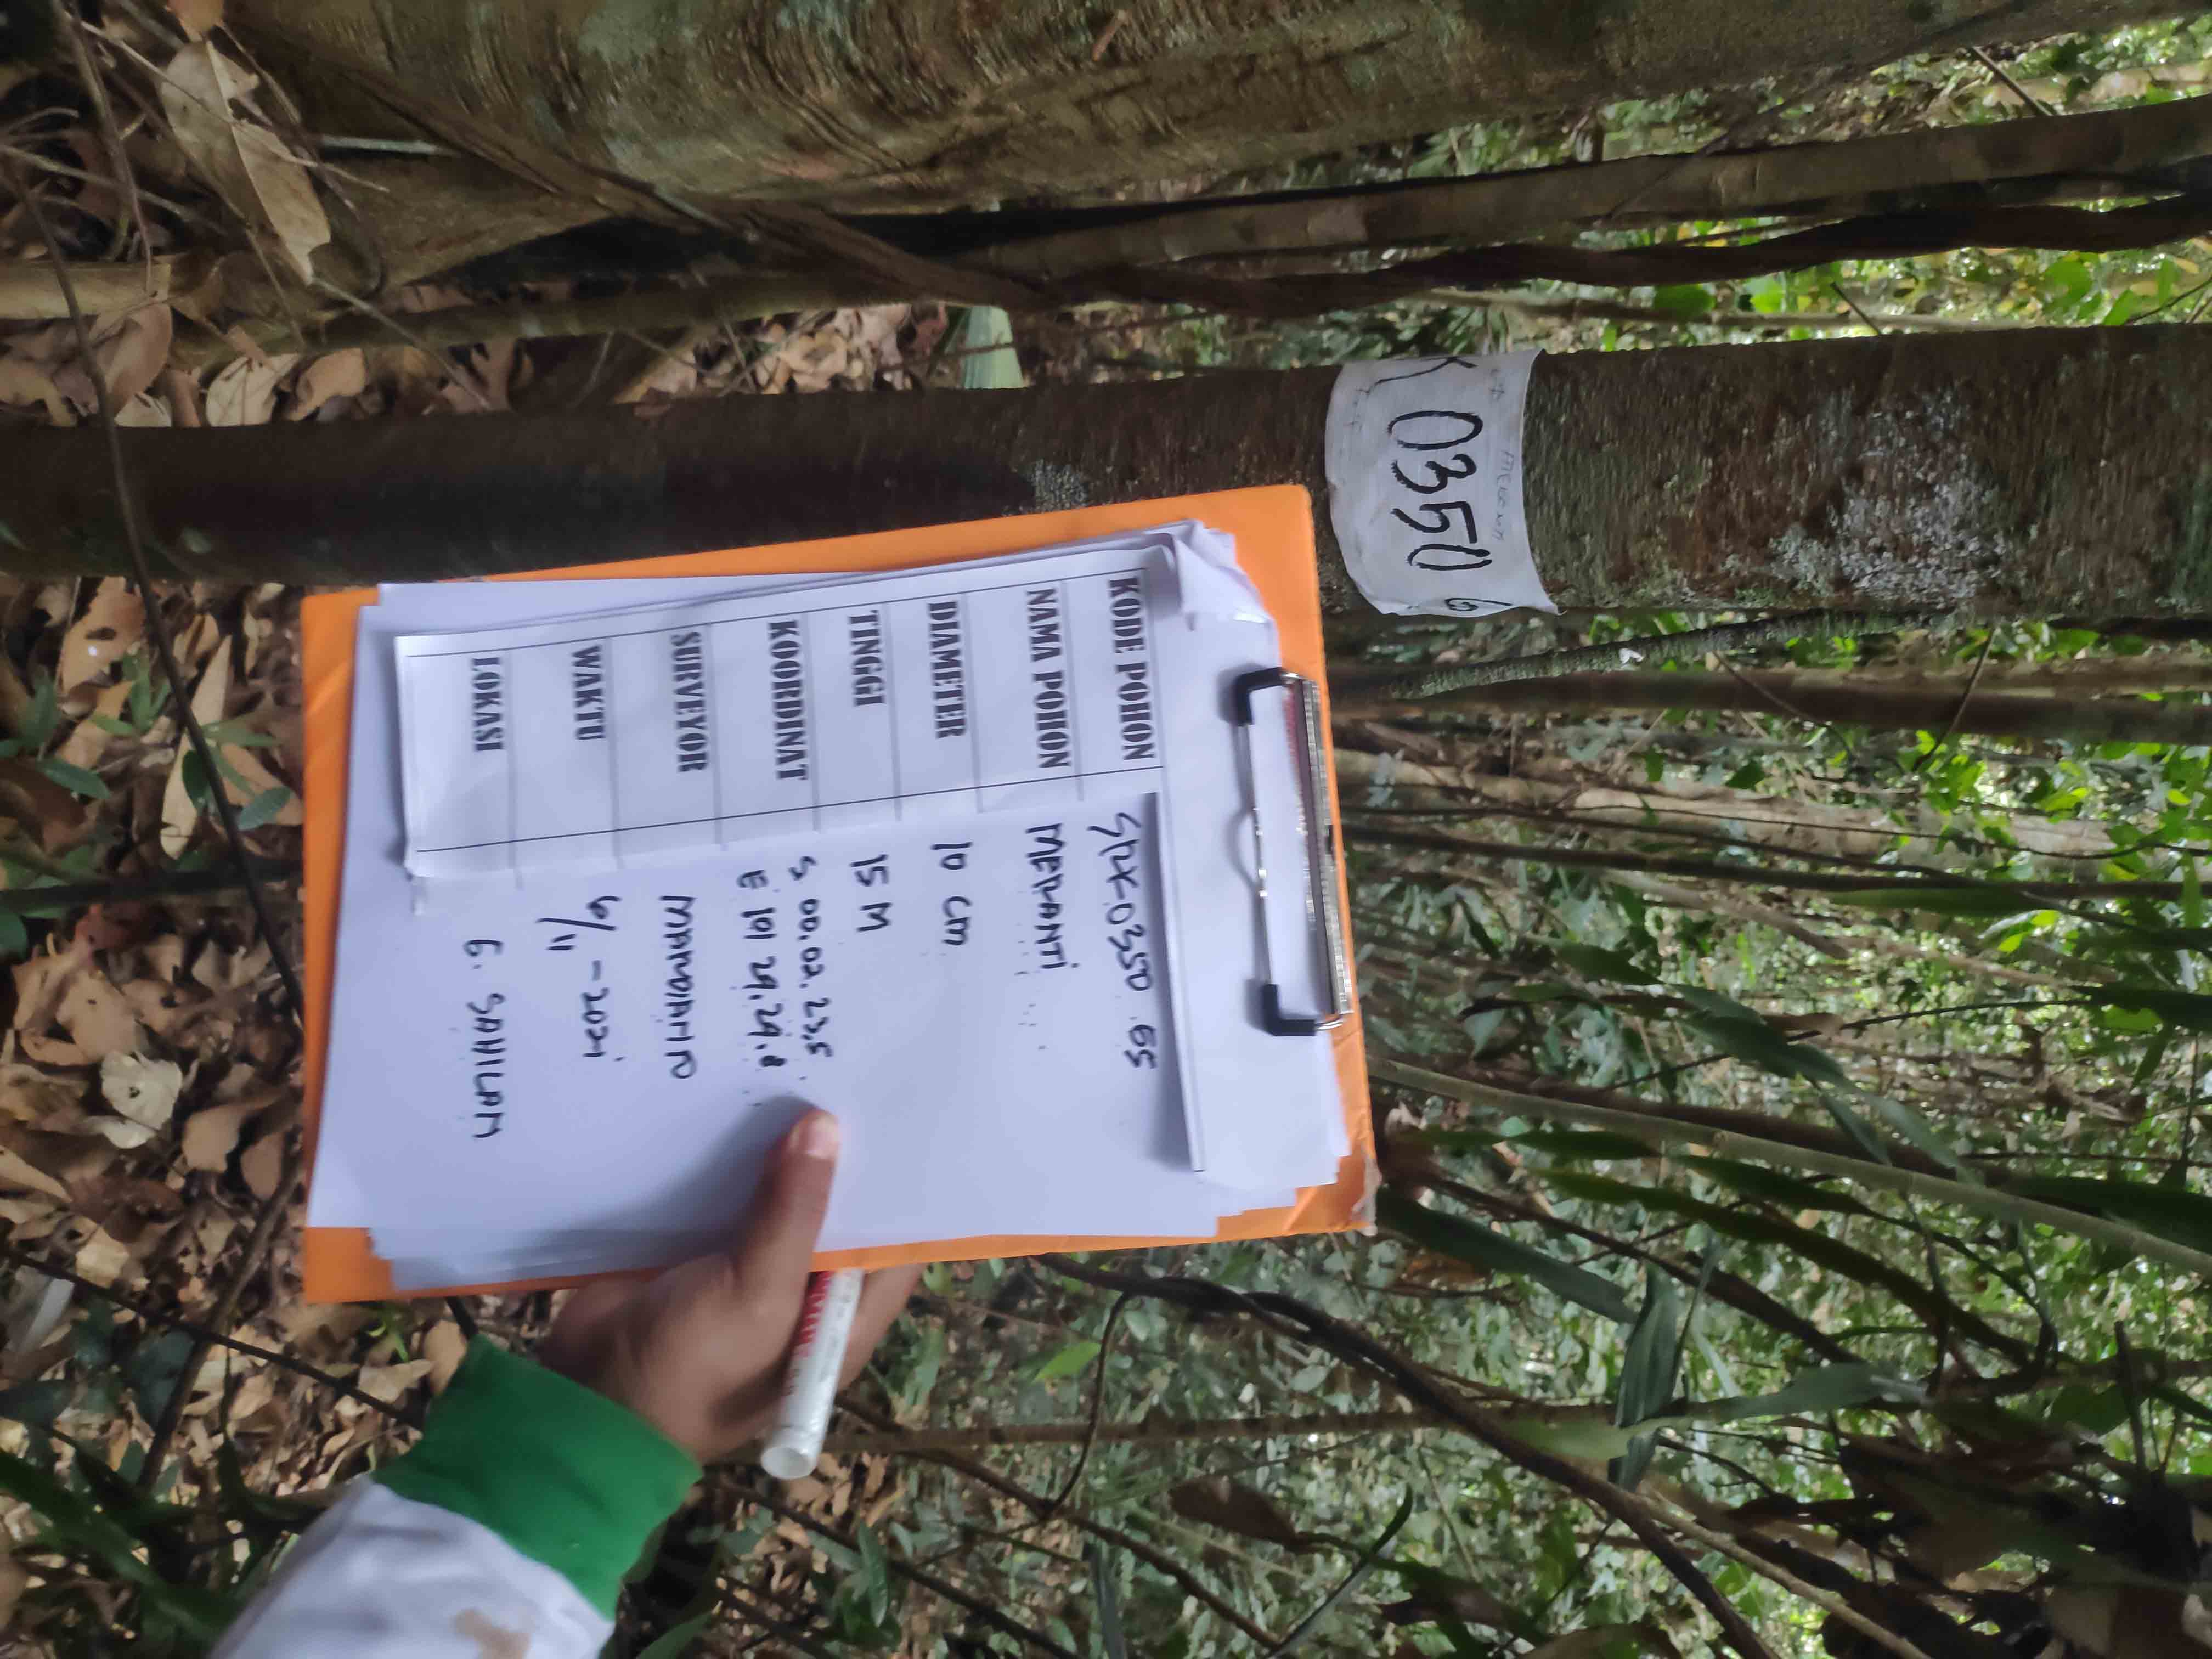 MERANTI
K 0350 G
KODE POHON SRK 0350 GS
NAMA POHON MERANTI
DIAMETER 10 cm
TINGGI 15 M
KOORDINAT S 00.02.23,5
E 101 29.29.8
SURVEYOR MARDIANTO
WAKTU 6/11-2021
LOKASI G. SAHILAN